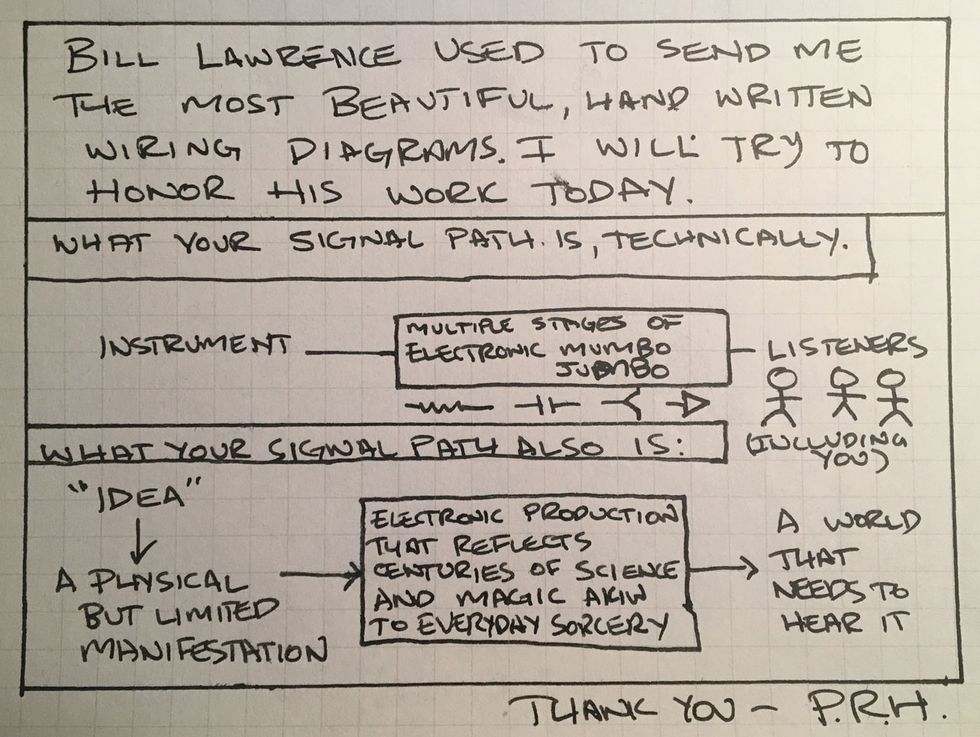 BILL LAWRENCE USED TO SEND ME
THE MOST BEAUTIFUL, HAND WRITTEN
WIRING DIAGRAMS. I WILL TRY TO
HONOR HIS WORK TODAY.
WHAT YOUR SIGNAL PATH IS, TECHNICALLY.
INSTRUMENT
MULTIPLE STAGES OF
ELECTRONIC MUMBO
JUMBO
LISTENERS
(INCLUDING
YOU)
WHAT YOUR SIGNAL PATH ALSO IS:
"IDEA"
A PHYSICAL
BUT LIMITED
MANIFESTATION
ELECTRONIC PRODUCTION
THAT REFLECTS
CENTURIES OF SCIENCE
AND MAGIC AKIN
TO EVERYDAY SORCERY
A WORLD
THAT
NEEDS TO
HEAR IT
THANK YOU - P.R.H.